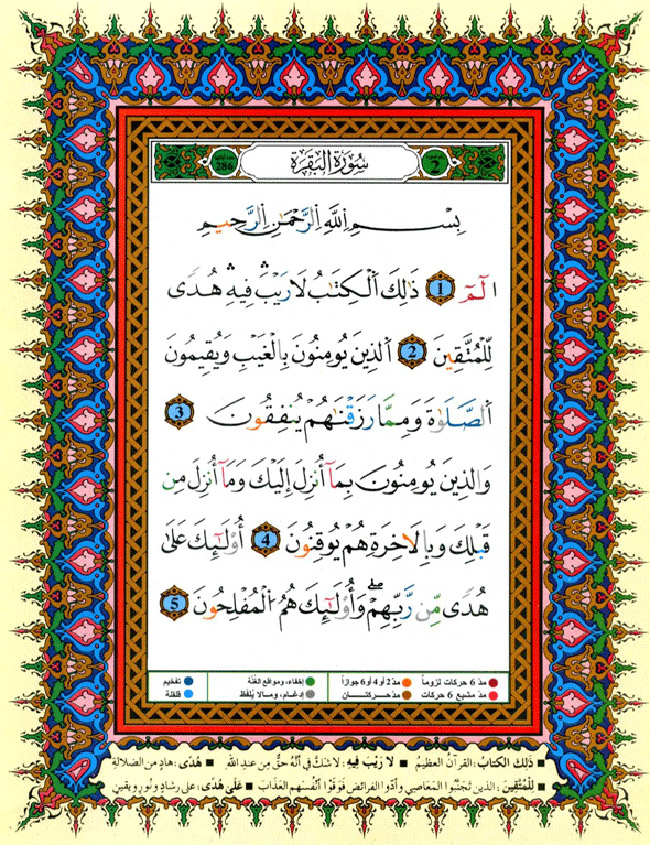 2 سُورَةُ البَقَرَةِ 286
بِسْمِ اِللَّهِ اِلرَّحْمَٰنِ اِلرَّحِيمِ
الٓمٓ 1 ذَٰلِكَ اَلْكِتَٰبُ لَا رَيْبَۛ فِيهِۛ هُدًى
لِّلْمُتَّقِينَ 2 اَلذِينَ يُومِنُونَ بِالْغَيْبِ وَيُقِيمُونَ
اَلصَّلَوٰةَ وَمِمَّا رَزَقْنَٰهُمْ يُنفِقُونَ 3
وَالذِينَ يُومِنُونَ بِمَآ أُنزِلَ إِلَيْكَ وَمَآ أُنزِلَ مِن
قَبْلِكَ وَبِالَاخِرَةِ هُمْ يُوقِنُونَ 4 أُوْلَٰٓئِكَ عَلَىٰ
هُدًى مِّن رَّبِّهِمْۖ وَأُوْلَٰٓئِكَ هُمُ اُلْمُفْلِحُونَ 5
مدّ 6 حركات لزوماً ● مدّ 2 أو 4 أو 6 جوازاً ● إخفاء، ومواقع الغُنَّة ● تفخيم
مدّ مشبع 6 حركات ● مدّ حركتان ● إدغام، ومالا يُلفظ ● قلقلة
■ ذَلِكَ الكِتَابُ: القرآنُ العظيمُ ■ لَا رَيْبَ فِيهِ: لاشكّ في أنّه حقٌّ مِن عند الله ■ هُدًى: هادٍ من الضلالة
■ لِلْمُتَّقِينَ: الذين تَجنّبُوا المَعاصِي وأدَّوا الفرائضَ فوقَوْا أنفُسَهم العَذَابَ ■ عَلَى هُدًى: على رشادٍ ونورٍ ويقين